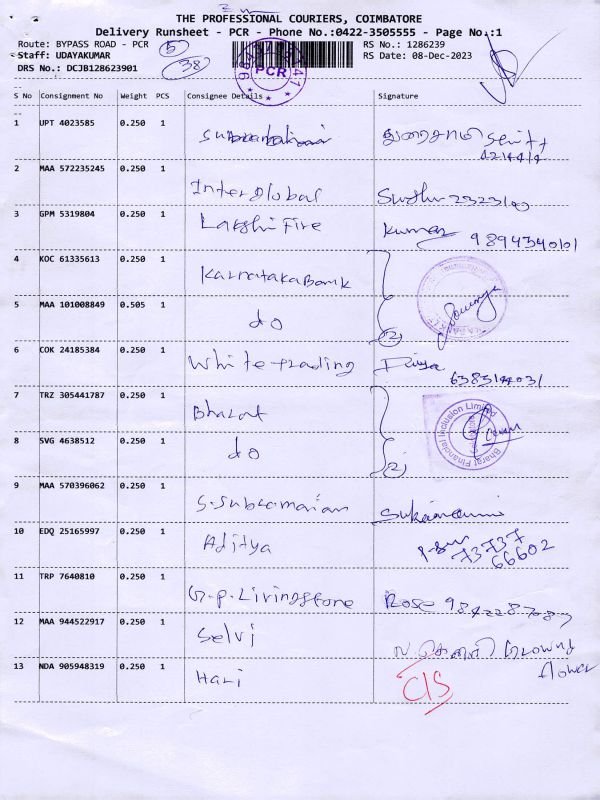 THE PROFESSIONAL COURIERS, COIMBATORE
Delivery Runsheet - PCR - Phone No.:0422-3505555 - Page No.:1
Route: BYPASS ROAD - PCR 5 RS No.: 1286239
Staff: UDAYAKUMAR RS Date: 08-Dec-2023
DRS No.: DCJB128623901 38
PCR
S No Consignment No Weight PCS Consignee Details Signature
1 UPT 4023585 0.250 1
2 MAA 572235245 0.250 1 Interglobal
3 GPM 5319804 0.250 1 Lakshi Fire Kumar 9894340101
4 KOC 61335613 0.250 1 Karnataka Bank
5 MAA 101008849 0.505 1 do 2 Sowmya
6 COK 24185384 0.250 1 White trading Divya
7 TRZ 305441787 0.250 1 Bharat
Bharat Financial Inclusion Limited
8 SVG 4638512 0.250 1 do 2
9 MAA 570396062 0.250 1 S. Subramanian
10 EDQ 25165997 0.250 1 Aditya
73737
66602
11 TRP 7640810 0.250 1 G.P. Livingstone Rose
12 MAA 944522917 0.250 1 Selvi
flower
13 NDA 905948319 0.250 1 Hari C/S